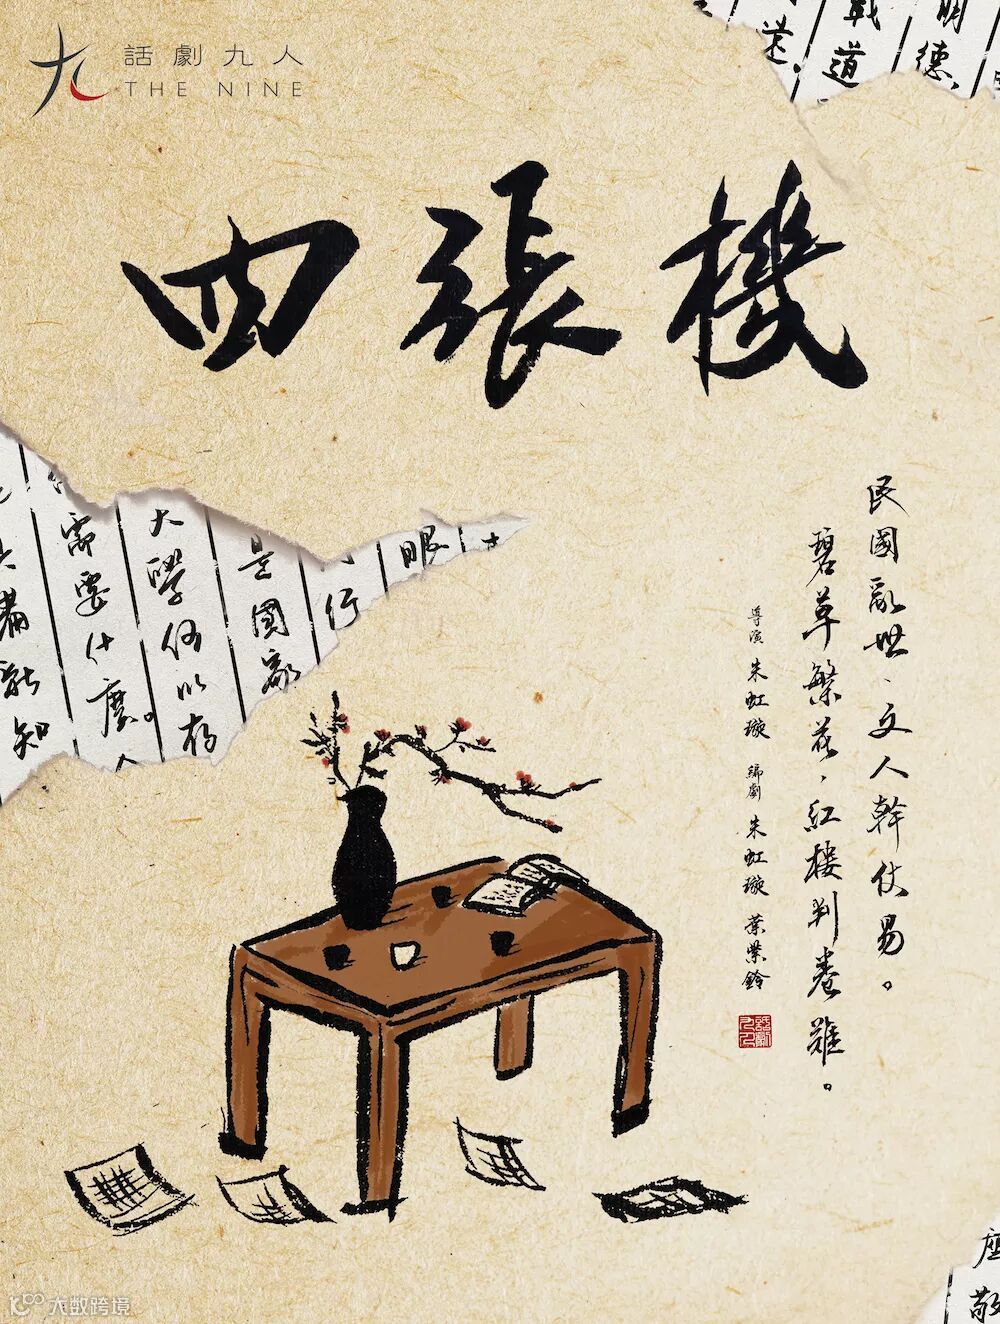 話劇九人
THE NINE
明德
戰道
遠。
四張機
民國亂世、文人幹仗易。
碧草繁花、紅樓判卷難。
導演 朱虹璇 編劇 朱虹璇 葉紫鈴
眼
行
是國家
大學何以存
需要什麼。人
能知
敬
大数跨境